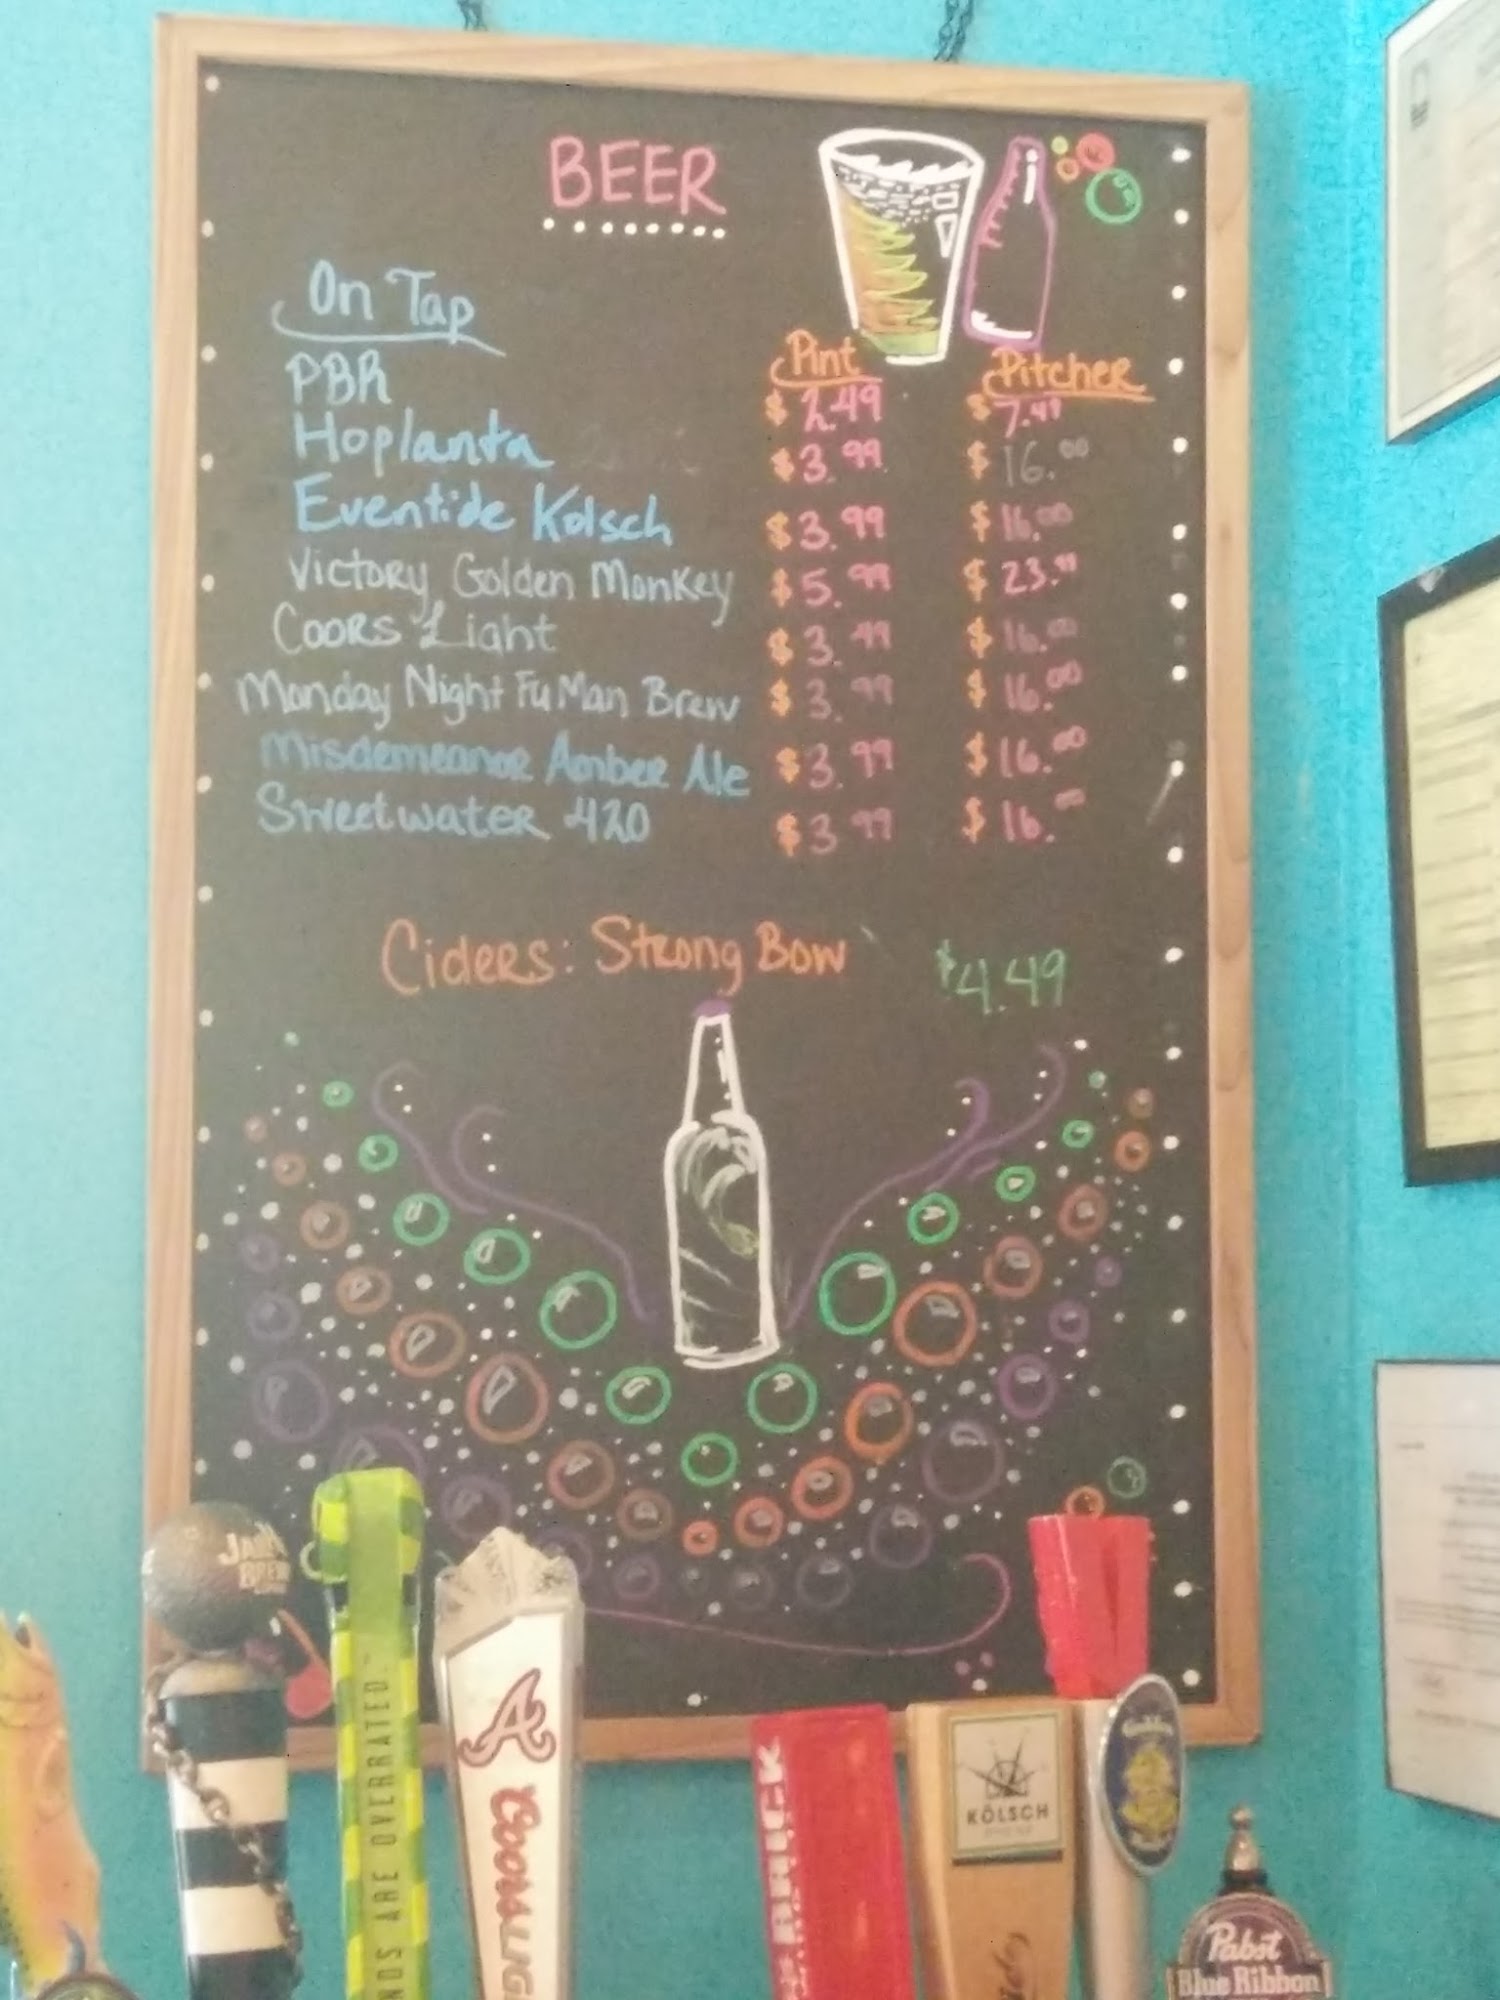 BEER
On Tap
Pint Pitcher
PBR $2.49 $7.49
Hoplanta $3.99 $16.00
Eventide Kolsch $3.99 $16.00
Victory Golden Monkey $5.99 $23.99
Coors Light $3.49 $16.00
Monday Night Fu Man Brew $3.99 $16.00
Misdemeanor Amber Ale $3.99 $16.00
Sweetwater 420 $3.99 $16.00
Ciders: Strong Bow $4.49
JAIL
BREW
NDS ARE OVERRATED.
A
Coors LIG
BRICK
KÖLSCH
Golden
Pabst
Blue Ribbon